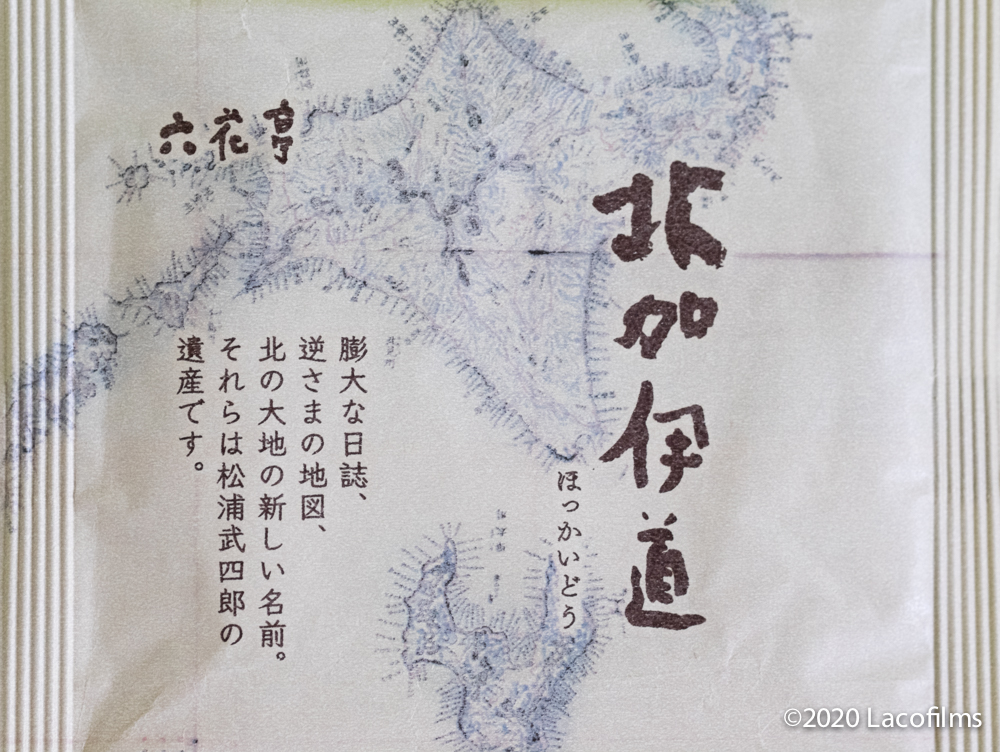 北加伊道
ほっかいどう
膨大な日誌、
逆さまの地図、
北の大地の新しい名前。
それらは松浦武四郎の
遺産です。
六花亭
©2020 Lacofilms